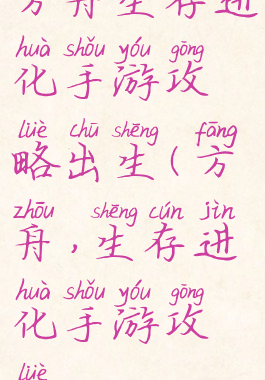 方舟生存进
huà shǒu yóu gōng
化手游攻
lüè chū shēng fāng
略出生(方
zhōu shēng cún jìn
舟,生存进
huà shǒu yóu gōng
化手游攻
lüè